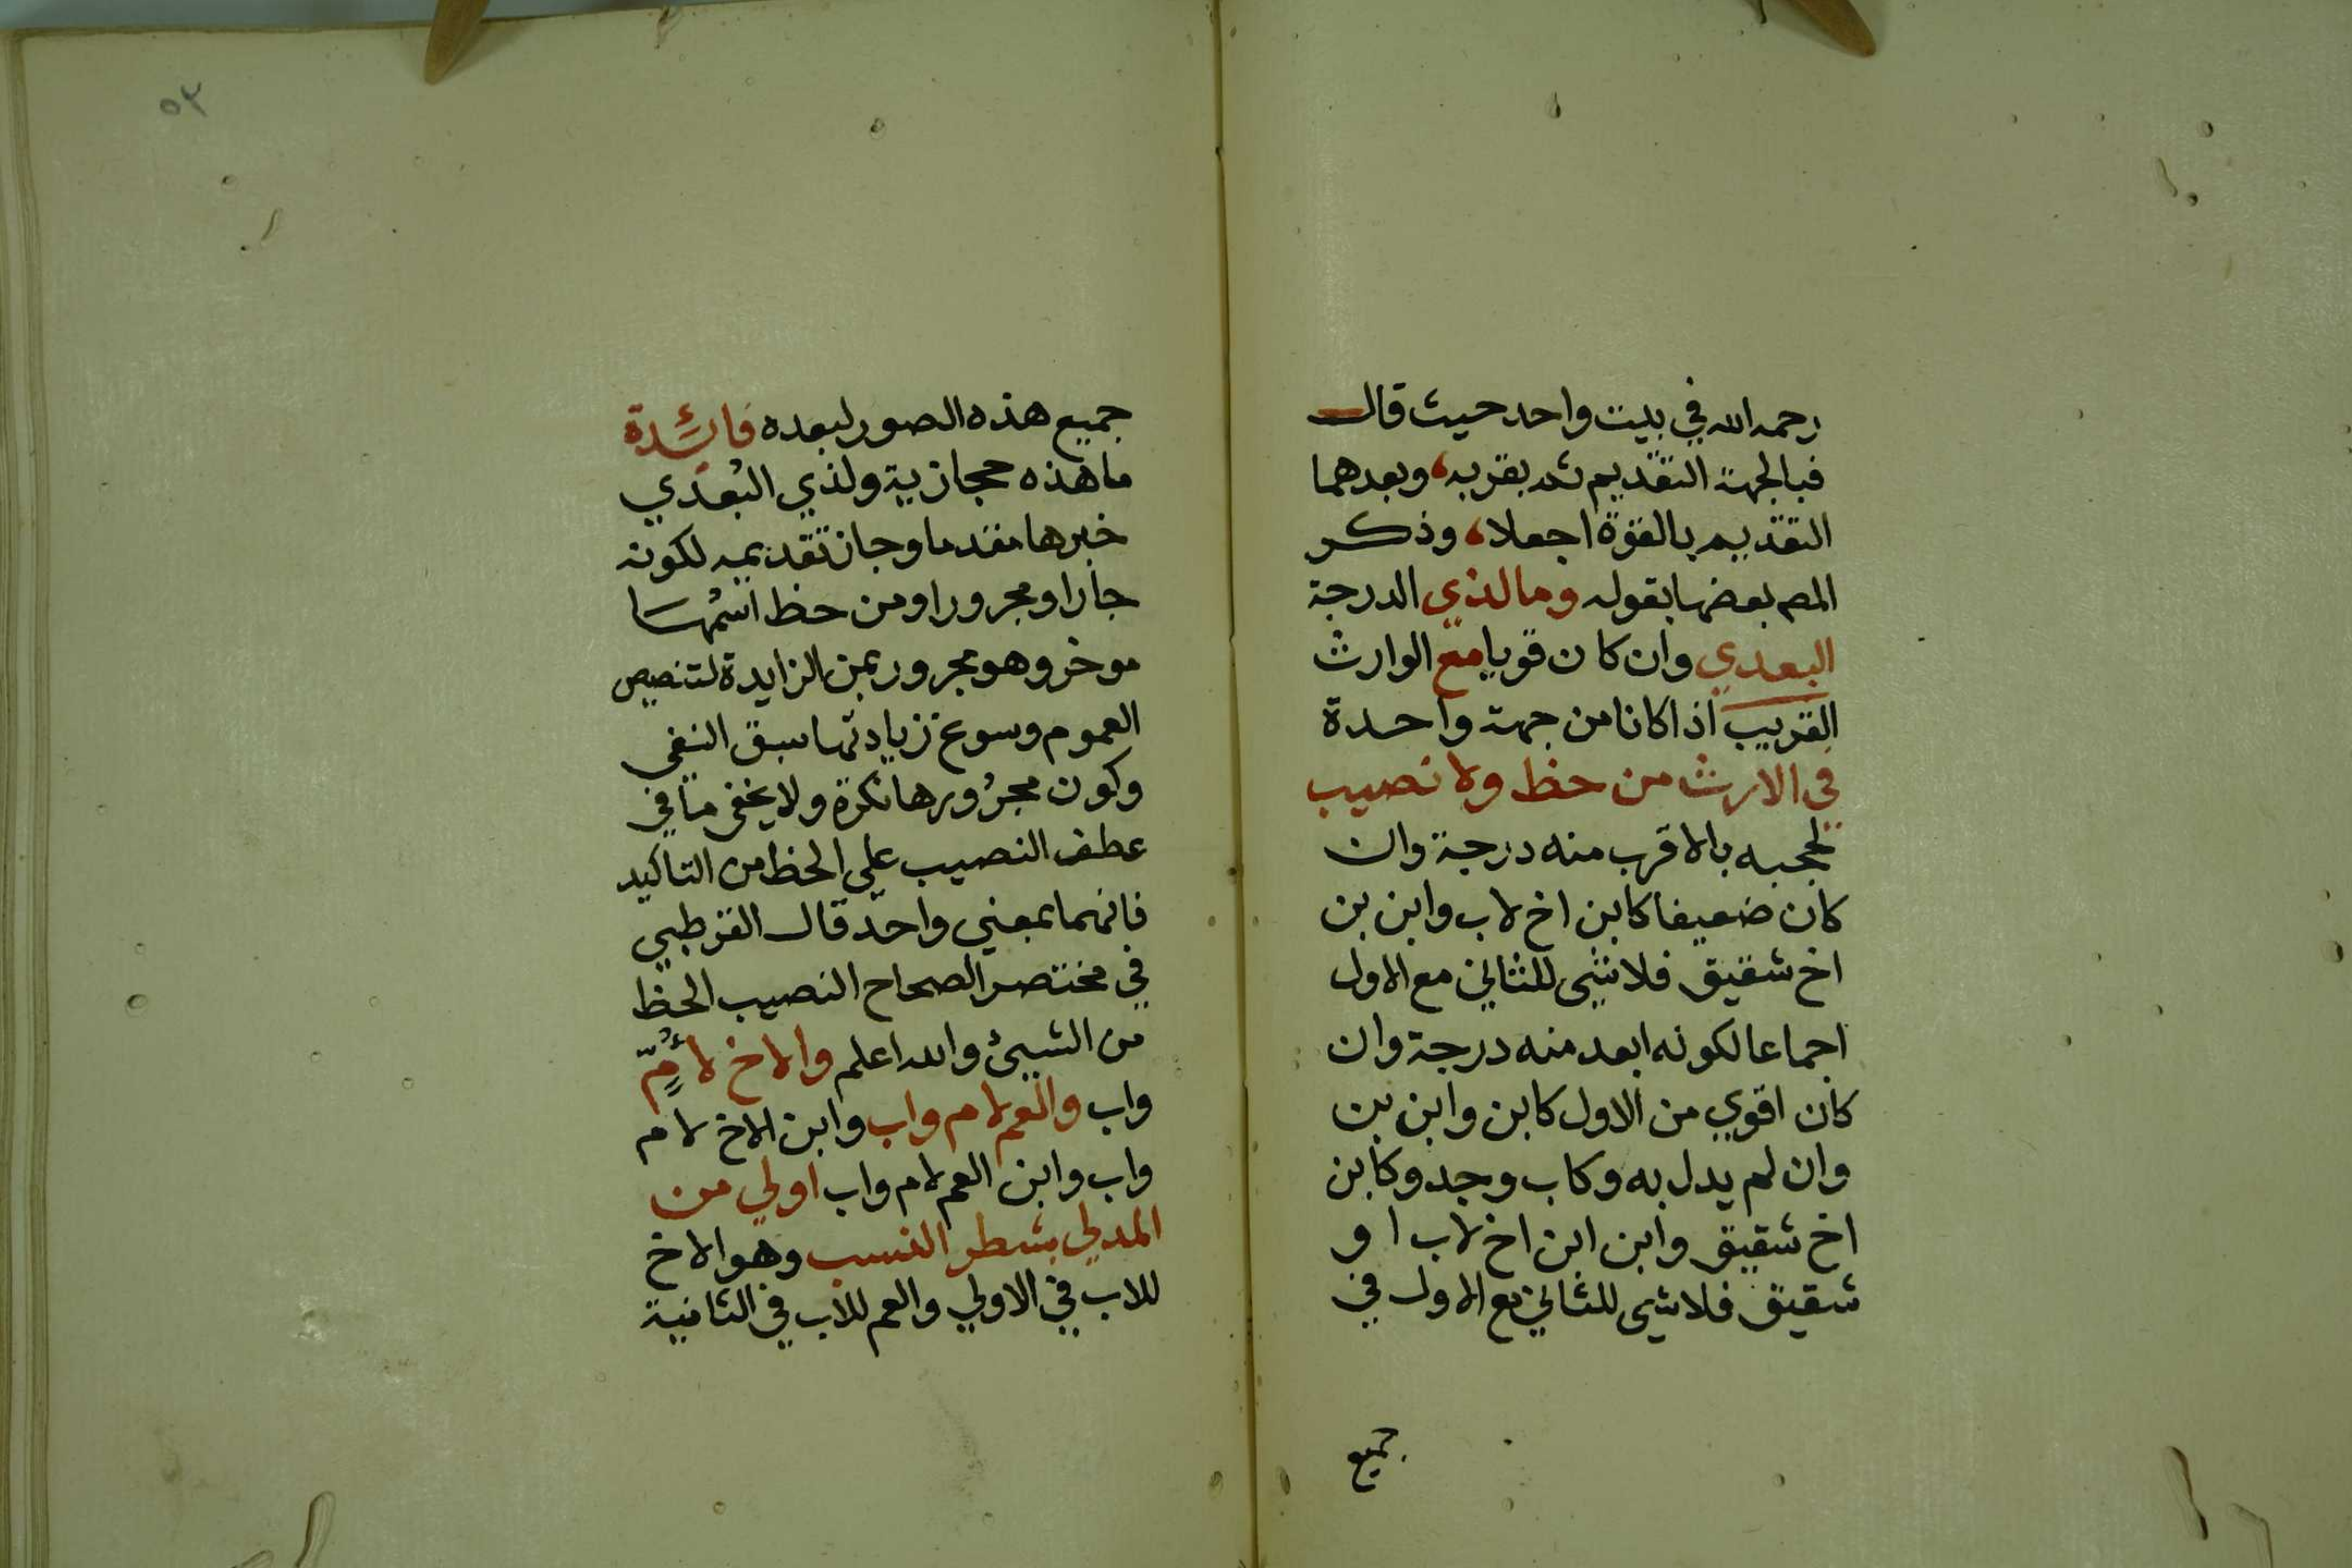 رحمه الله في بيت واحد حيث قال
فبالجهة التقديم ثم بقربه، وبعدهما
التقديم بالقوة اجعلا، وذكر
المص بعضها بقوله وما لذي الدرجة
البعدي وان كان قويا مع الوارث
القريب اذا كانا من جهة واحدة
في الارث من حظ ولا نصيب
لحجبه بالاقرب منه درجة وان
كان ضعيفا كابن اخ لاب وابن بن
اخ شقيق فلا شي للثاني مع الاول
اجماعا لكونه ابعد منه درجة وان
كان اقوي من الاول كابن وابن بن
وان لم يدل به وكاب وجد وكابن
اخ شقيق وابن ابن اخ لاب او
شقيق فلا شي للثاني مع الاول في
جميع
٥٣
جميع هذه الصور لبعده فائدة
ما هذه حجازية ولذي البُعدي
خبرها مقدما وجاز تقديمه لكونه
جارا ومجرورا ومن حظ اسمها
موخر وهو مجرور بمن الزايدة لتنصيص
العموم وسوغ زيادتها سبق النفي
وكون مجرُورها نكرة ولا يخفى ما في
عطف النصيب علي الحظ من التاكيد
فانهما بمعني واحد قال القرطبي
في مختصر الصحاح النصيب الحظ
من الشيئ والله اعلم والاخ لأُمٍّ
واب والعم لام واب وابن الاخ لام
واب وابن العم لام واب اولي من
المدلي بشطر النسب وهو الاخ
للاب في الاولي والعم للاب في الثانية